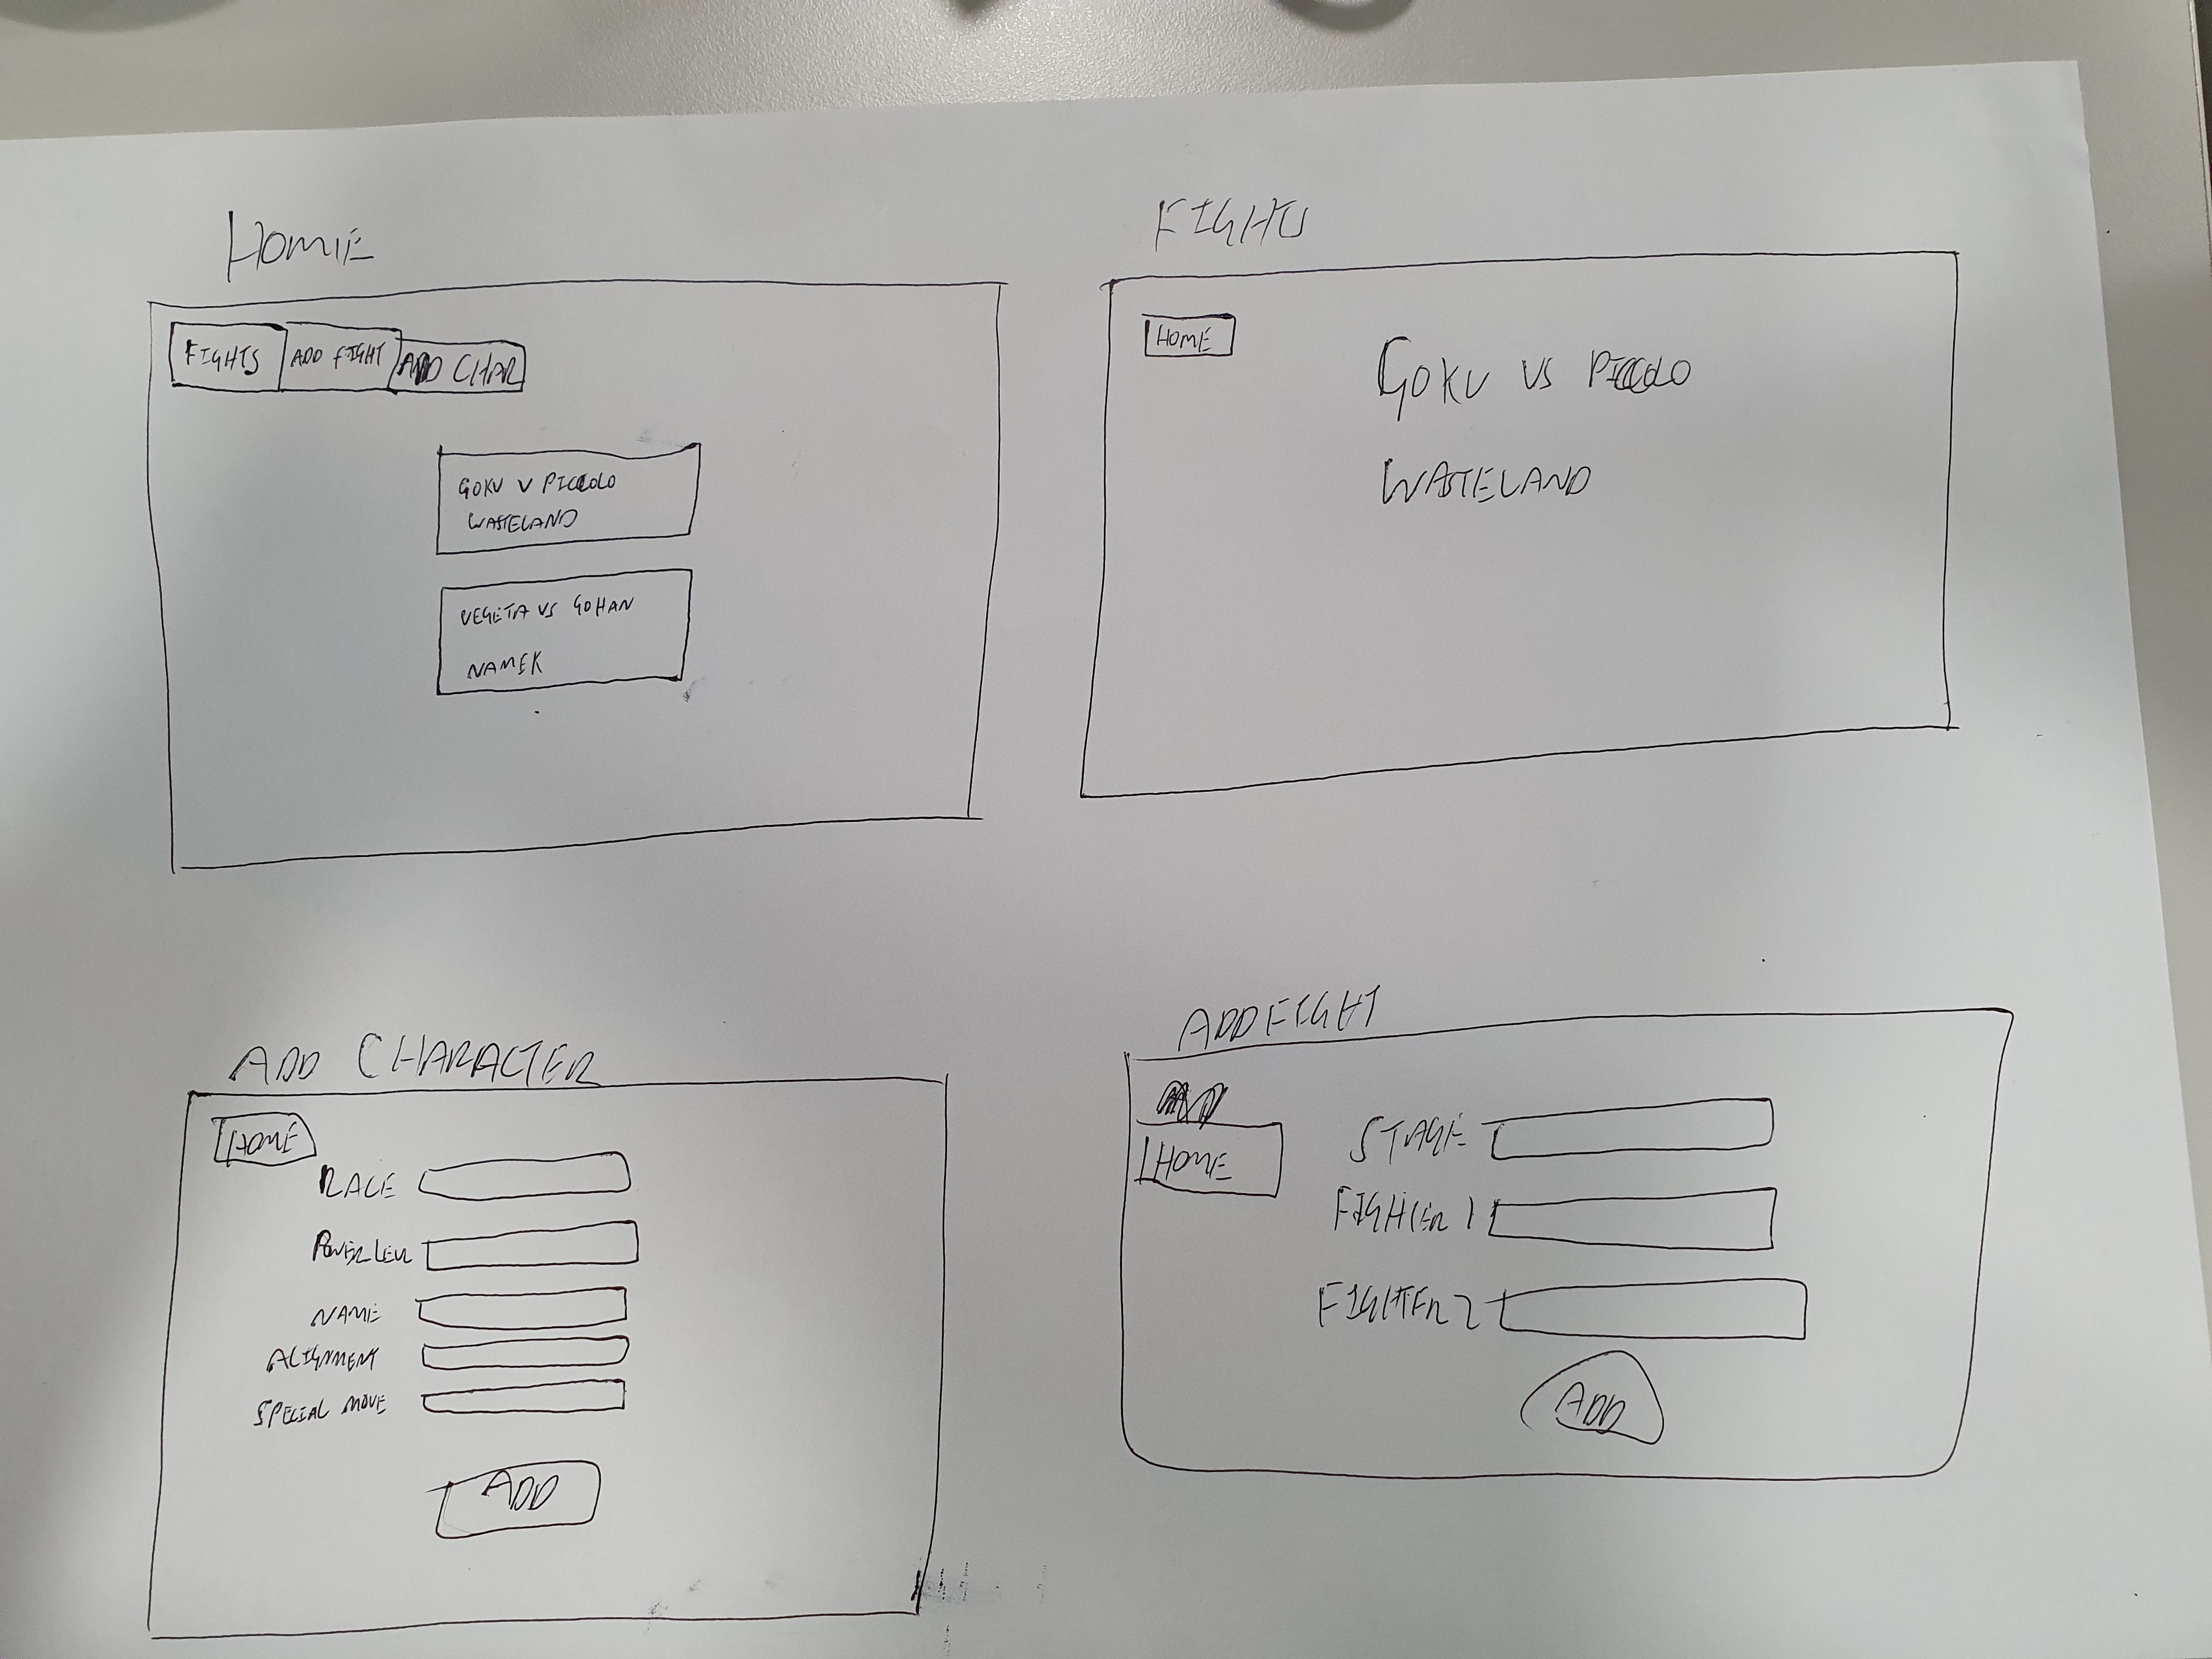 HOME
FIGHTS
ADD FIGHT
ADD CHAR
GOKU V PICCOLO
WASTELAND
VEGETA VS GOHAN
NAMEK
FIGHTS
HOME
GOKU VS PICCOLO
WASTELAND
ADD CHARACTER
HOME
RACE
POWER LEVEL
NAME
ALIGNMENT
SPECIAL MOVE
ADD
ADD FIGHT
HOME
STAGE
FIGHTER 1
FIGHTER 2
ADD